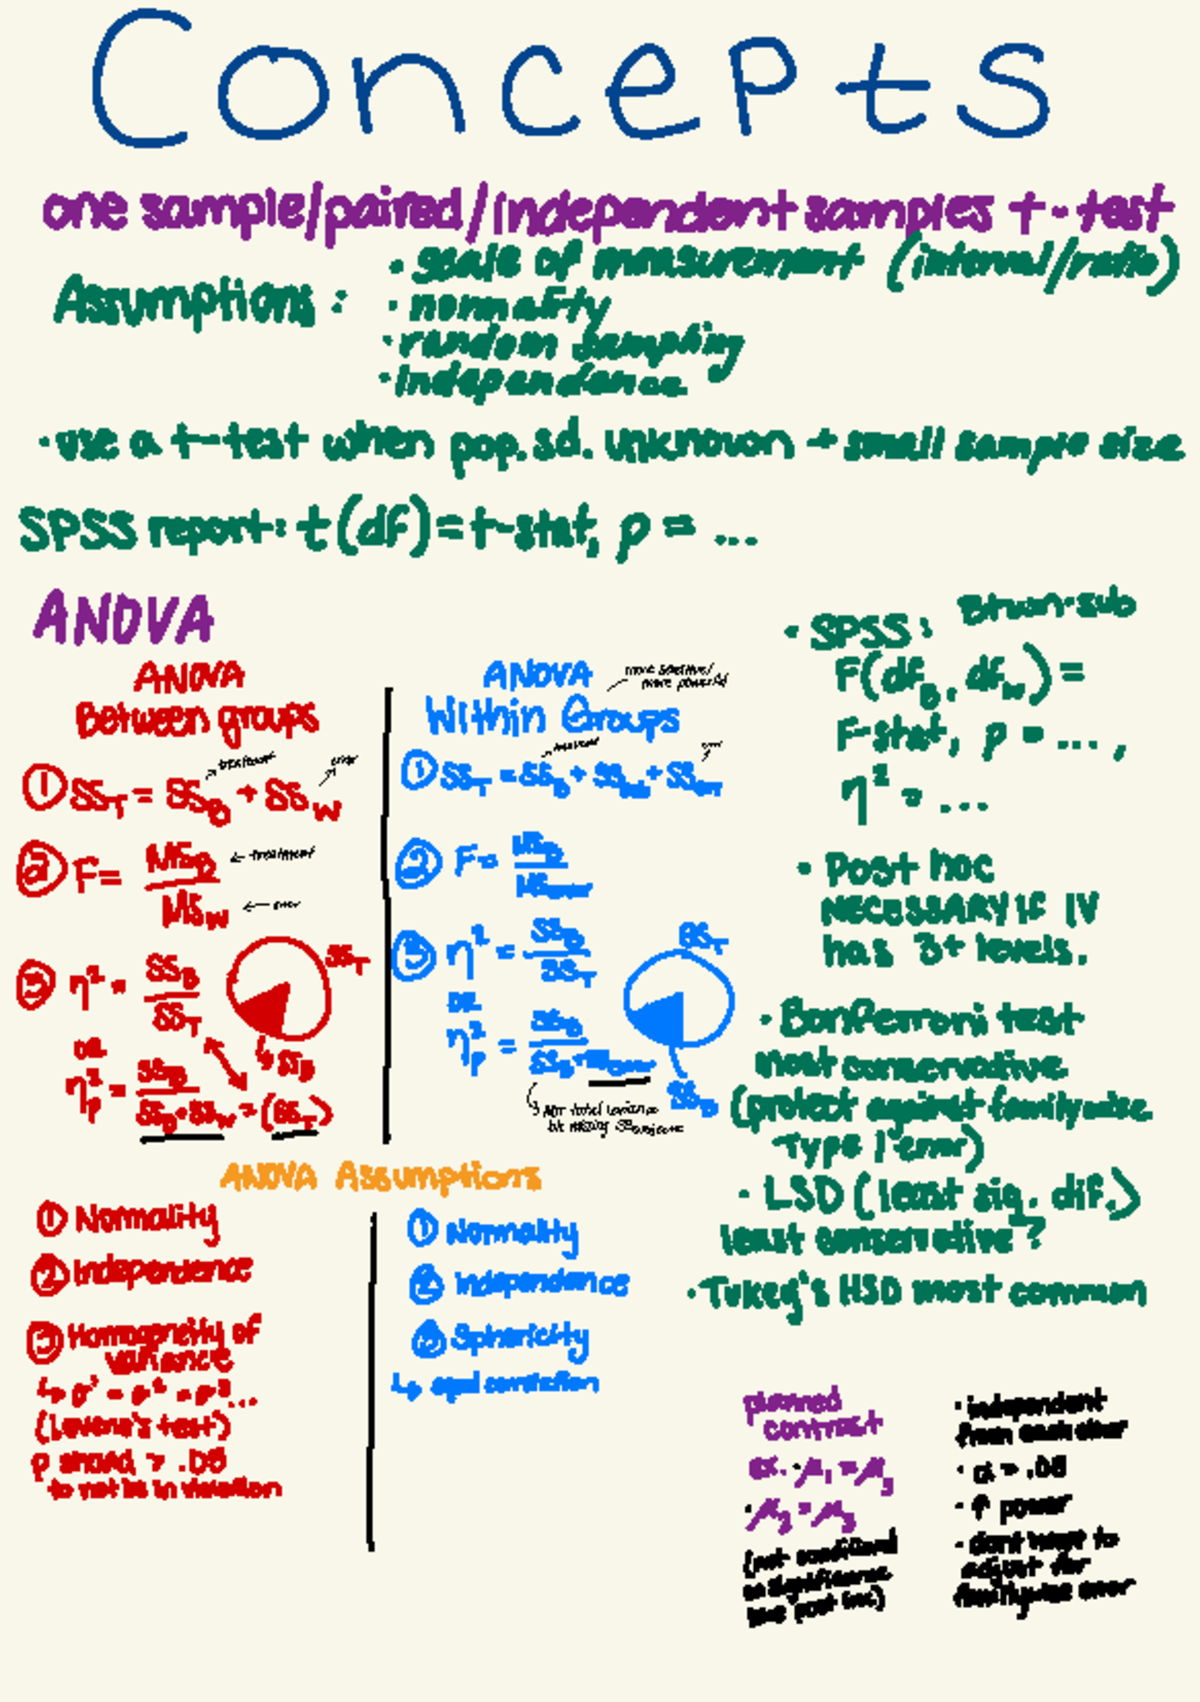 Concepts
one sample/paired/independent samples t-test
Assumptions:
• scale of measurement (interval/ratio)
• normality
• random sampling
• independence
• use a t-test when pop. sd. unknown + small sample size
SPSS report: t(df)=t-stat, p = ...
ANOVA
ANOVA
Between groups
① SS_T = SS_B + SS_W
treatment
error
② F = MS_B / MS_W
← treatment
← error
③ η² = SS_B / SS_T
OR
η²_p = SS_B / SS_B+SS_W = (SS_T)
SS_T
↳ SS_B
ANOVA
Within Groups
more sensitive/
more powerful
① SS_T = SS_B + SS_sub + SS_err
treatment
error
② F = MS_B / MS_error
③ η² = SS_B / SS_T
OR
η²_p = SS_B / SS_B+SS_error
SS_T
SS_B
↳ Not total variance
bc missing SS_subjects
ANOVA Assumptions
① Normality
② Independence
③ Homogeneity of
variance
↳ σ² = σ² = σ² ...
(Levene's test)
p should > .05
to not be in violation
① Normality
② independence
③ Sphericity
↳ equal correlation
• SPSS: Btwn-sub
F(df_B, df_W) =
F-stat, p = ...,
η² = ...
• Post hoc
NECESSARY IF IV
has 3+ levels.
• Bonferroni test
most conservative
(protect against familywise
Type 1 error)
• LSD (least sig. dif.)
least conservative?
• Tukey's HSD most common
planned
contrast
ex. • μ₁ = μ₃
• μ₂ = μ₃
(not conditional
on significance
like post hoc)
• independent
from each other
• α = .05
• ↑ power
• dont have to
adjust for
familywise error